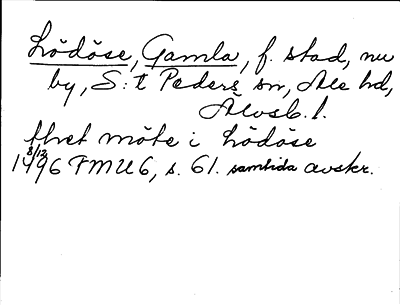 Lödöse, Gamla, f. stad, nu
by, S:t Peders sn, Ale hd,
Älvsb. l.
thet möte i Lödöse
8/12
1496 FMU 6, s. 61. samtida avskr.